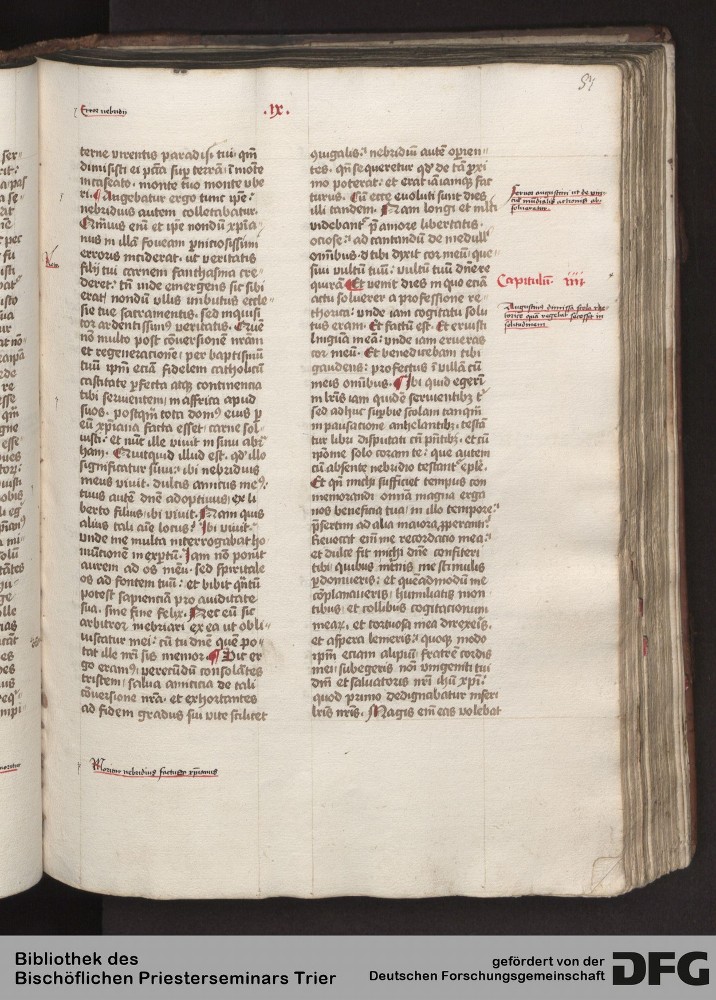 Error nebridij
.ix.
57
terne virentis paradisi tui. qm̄
dimisisti ei pctā̄ sup̄ terrā. ī mōte
incaseato. monte tuo monte vbe
ri. Augebatur ergo tunc ip̄e.
nebridius autem colletabatur.
Q̄muis em̄ et ip̄e nondū xp̄ia
nus in illā foueam p̄niciosissimi
erroris inciderat. ut veritatis
filij tui carnem fanthasma cre
deret: tn̄ inde emergens sic sibi
erat. nondū vllis imbutus eccle
sie tue sacramentis. sed inquisi
tor ardentissimus veritatis. Quē
nō multo post cōuersionē nr̄am
et regeneracionē. per baptismū
tuū ip̄m eciā fidelem catholicū
castitate perfecta atqꝫ continencia
tibi seruientem. in affrica apud
suos. postqm̄ tota domꝰ eius p̄
eū xp̄iana facta esset. carne sol
uisti. et nūc ille viuit in sinu abr̄
ham. Quitquid illud est. qd̓ illo
significatur sinu: ibi nebridius
meus viuit. dulcis amicus meꝰ.
tuus autē dn̄e adoptiuus. ex li
berto filius. ibi viuit. Nam quis
alius tali aīe locus? Ibi viuit.
vnde me multa interrogabat ho
mūcionē inexp̄tū. Iam nō ponit
aurem ad os meū. sed spiritale
os ad fontem tuū: et bibit qn̄tū
potest sapienciā pro auiditate
sua. sine fine felix. Nec eū sic
arbitror inebriari ex ea ut obli
uiscatur mei: cū tu dn̄e quē po
tat ille nr̄i sis memor. Sic er
go eramꝰ. verecūdū consolātes
tristem. salua amicicia de tali
cōuersione nr̄a. et exhortantes
ad fidem gradus sui vite scilicet
Moritur nebridius factus xp̄ianus
9iugalis. nebridiū autē opperien
tes. qn̄ sequeretur qd̓ de tā p̄xi
mo poterat. et erat iā iamqꝫ fac
turus. Cū ecce euoluti sunt dies
illi tandem. Nam longi et ml̓ti
videbant᷑ p̄ amore libertatis.
ociose. ad cantandū de medull̓
om̄ibus. Tibi dixit cor meū. que
siui vultū tuū. vultū tuū dn̄e re
quirā. Et venit dies in quo eciā
actu soluerer a professione re
thorica. vnde iam cogitatu solu
tus eram. Et factū est. Et eruisti
linguā meā. vnde iam erueras
cor meū. Et benedicebam tibi
gaudens. profectus ī villā cū
meis om̄ibus. Ibi quid egerī
in lr̄is iam quidē seruientibꝫ t̓
sed adhuc sup̄bie scolam tanqm̄
in pausacione anhelantibꝫ. testāt᷑
tur libri disputati cū p̄ntibꝫ. et cū
ip̄o me solo coram te. que autem
cū absente nebridio testant᷑ ep̄le.
Et qn̄ michi sufficiet tempus com
memorandi omnia magna erga
nos beneficia tua. in illo tempore.
p̄sertim ad alia maiora p̄peranti.
Reuocat em̄ me recordacio mea.
et dulce fit michi dn̄e confiteri
tibi. quibus int̓nis me stimulis
p̄domueris. et quēadmodū me
cōplanaueris. humiliatis mon
tibus. et collibus cogitacionum
mearꝫ. et tortuosa mea direxeris.
et aspera lenieris. quoqꝫ modo
ip̄m eciam alipiū. fratrē cordis
mei. subegeris noī vnigeniti tui
dn̄i et saluatoris nr̄i ih̄u xp̄i.
quod primo dedignabatur inseri
lr̄is nr̄is. Magis em̄ eas volebat
feruor augustini ut de vin
culis mūdialis actionis ab
solueretur
Capitulū iiii
Augustinus dimissa scola rhe
torice quā regebat secessit in
solitudinem
Bibliothek des
Bischöflichen Priesterseminars Trier
gefördert von der
Deutschen Forschungsgemeinschaft
DFG